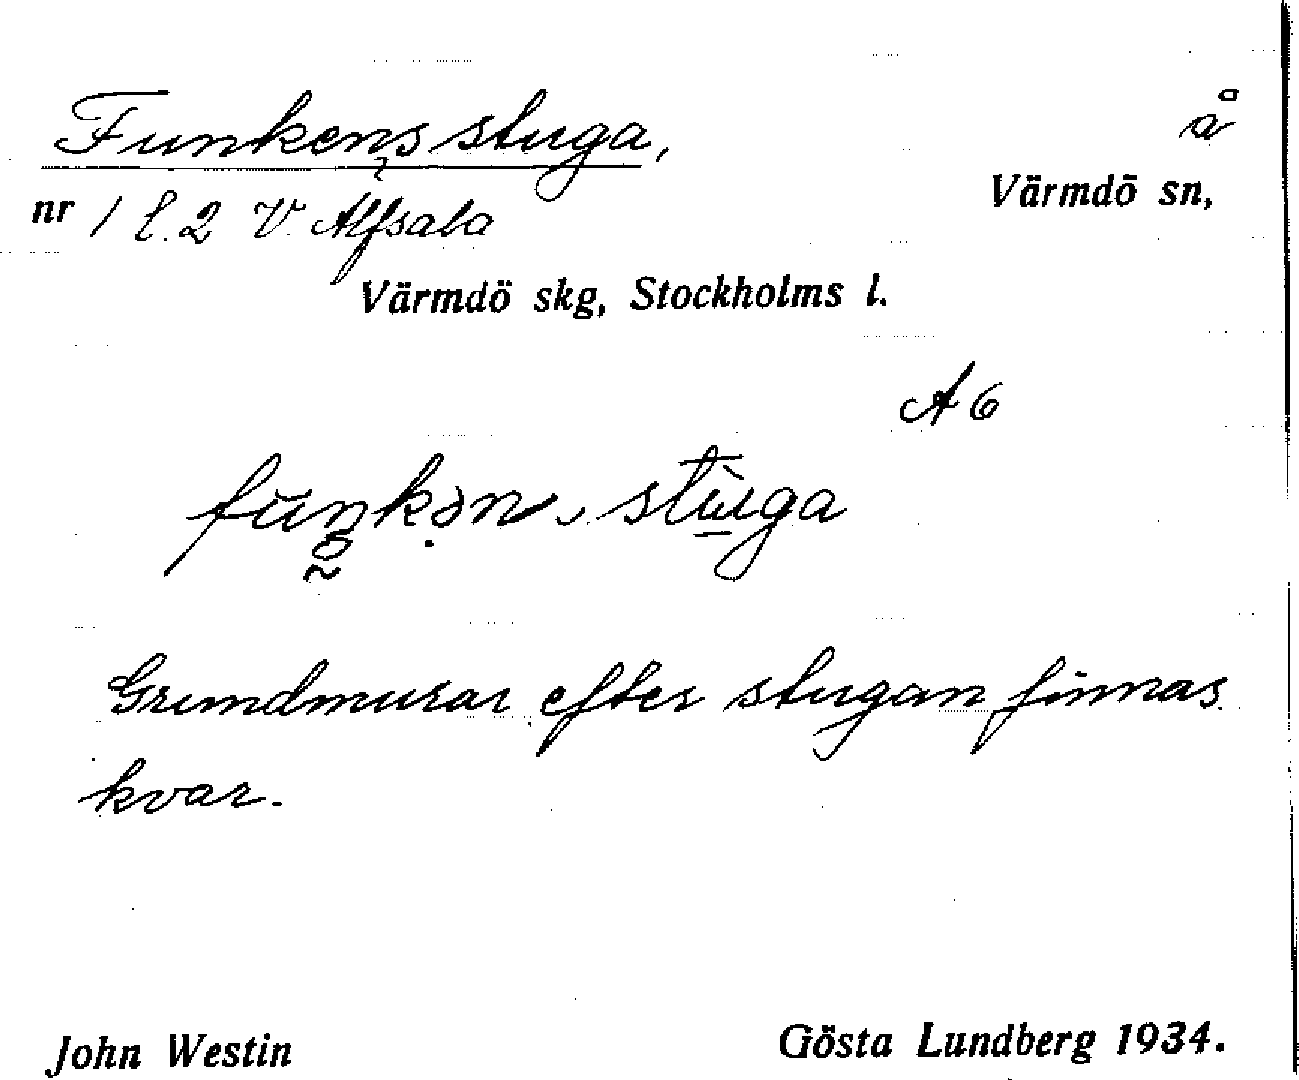 Funkens stuga, å
nr 1 l. 2 V. Alfsala Värmdö sn,
Värmdö skg, Stockholms l.
A6
funkən stuga
Grundmurar efter stugan finnas
kvar.
John Westin Gösta Lundberg 1934.